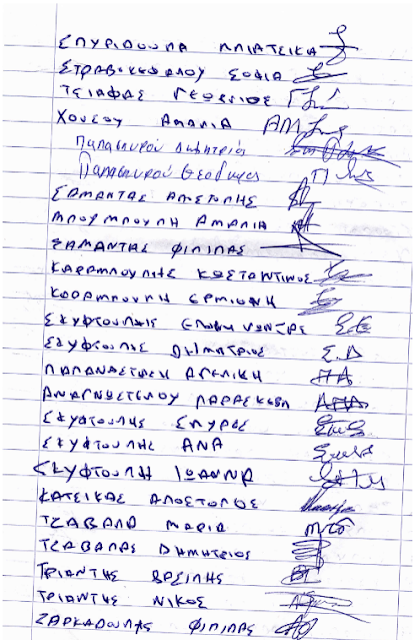 ΣΠΥΡΙΔΟΥΛΑ ΜΠΙΑΤΣΙΚΑ
ΣΤΡΑΒΟΚΕΦΑΛΟΥ ΣΟΦΙΑ
ΤΣΙΑΦΑΣ ΓΕΩΡΓΙΟΣ
ΧΟΥΣΟΥ ΑΜΑΛΙΑ
Παπασπυρού Δημήτριος
Παπασπυρού Θεόδωρος
ΣΑΜΑΝΤΑΣ ΑΠΟΣΤΟΛΗΣ
ΜΠΟΥΡΜΠΟΥΛΗ ΑΜΑΛΙΑ
ΣΑΜΑΝΤΑΣ ΦΙΛΙΠΑΣ
ΚΑΡΑΜΠΟΥΛΗΣ ΚΩΣΤΑΝΤΙΝΟΣ
ΚΑΡΑΜΠΟΥΛΗ ΕΡΜΙΟΝΗ
ΣΚΥΦΤΟΥΛΗΣ
ΣΚΥΦΤΟΥΛΗΣ ΔΗΜΗΤΡΙΟΣ Σ.Δ
ΠΑΠΑΝΑΣΤΑΣΗ ΑΓΕΛΙΚΗ ΠΑ
ΑΝΑΓΝΩΣΤΕΛΟΥ ΠΑΡΑΣΚΕΒΗ
ΣΚΥΦΤΟΥΛΗΣ ΣΠΥΡΟΣ
ΣΚΥΦΤΟΥΛΗΣ ΑΝΑ
ΣΚΥΦΤΟΥΛΗ ΙΩΑΝΝΑ
ΚΑΤΣΙΚΑΣ ΑΠΟΣΤΟΛΟΣ
ΤΖΑΒΑΛΑ ΜΑΡΙΑ
ΤΖΑΒΑΛΑΣ ΔΗΜΗΤΡΙΟΣ
ΤΡΙΑΝΤΗΣ ΒΑΣΙΛΗΣ
ΤΡΙΑΝΤΗΣ ΝΙΚΟΣ
ΖΑΡΚΑΔΟΥΛΑΣ ΦΙΛΙΠΑΣ